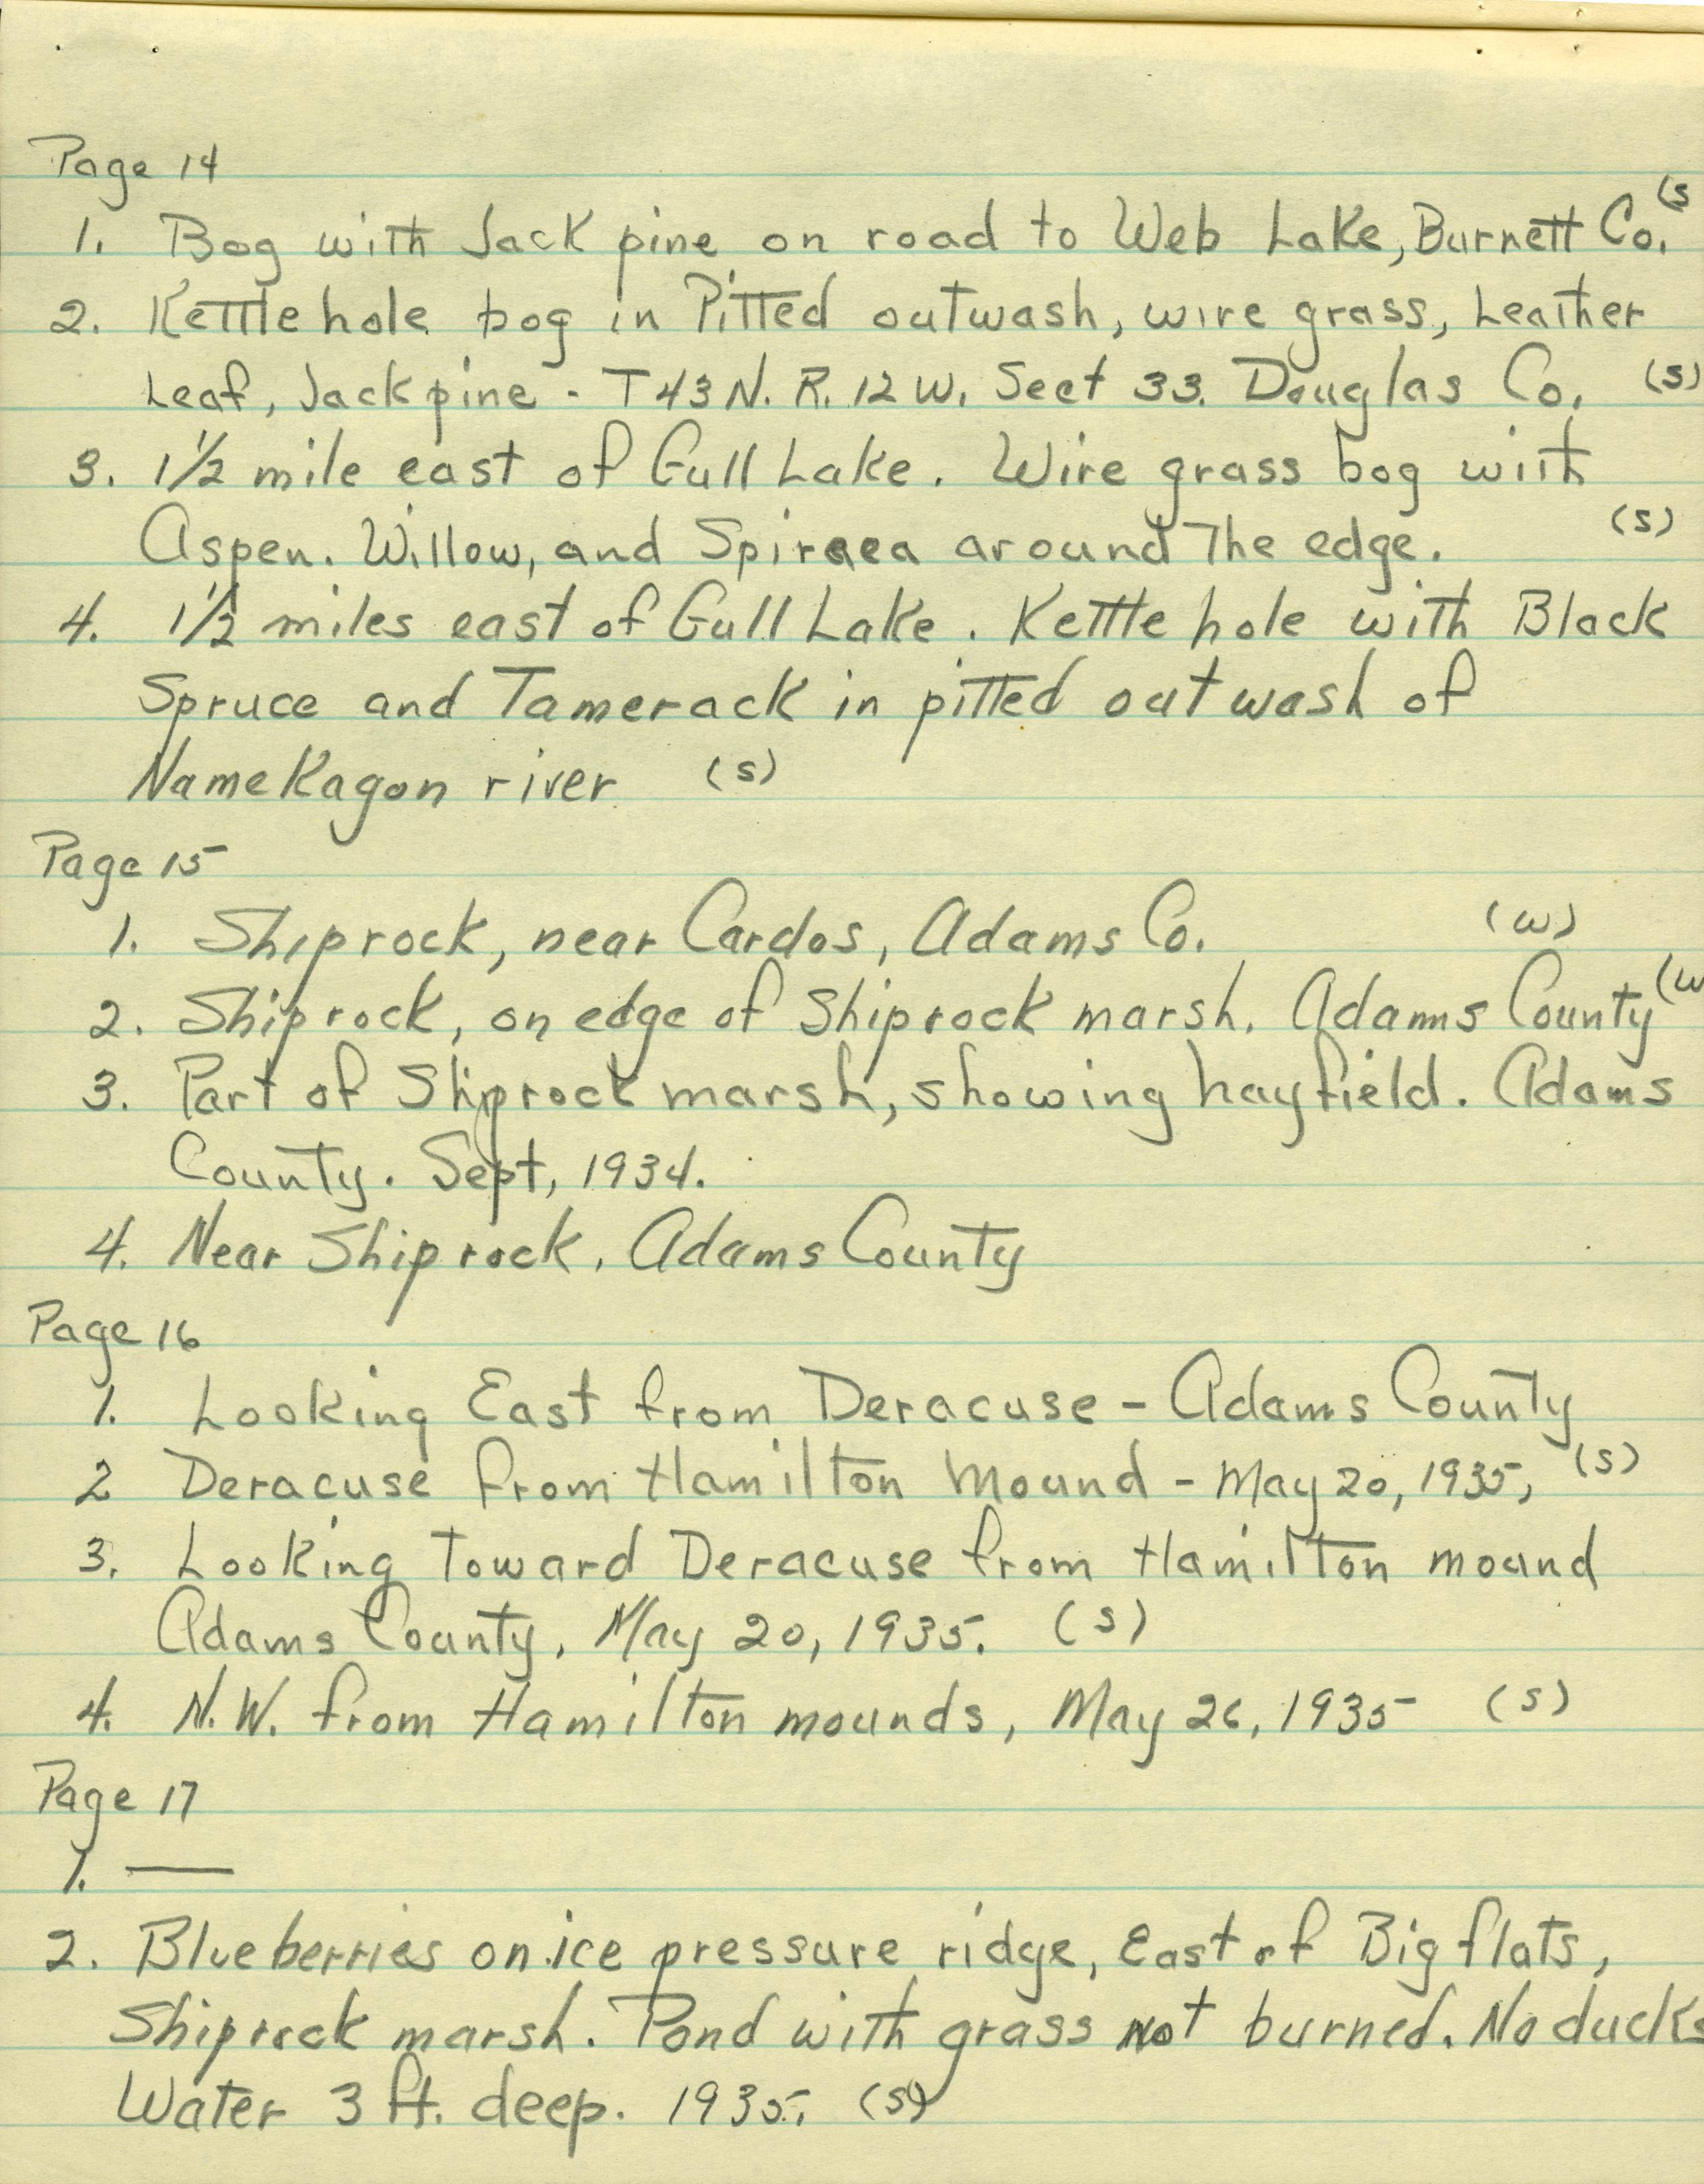 Page 14
1. Bog with Jack pine on road to Web Lake, Burnett Co. (s
2. Kettle hole bog in Pitted outwash, wire grass, Leather
Leaf, Jack pine - T43N. R. 12 W. Sect 33. Douglas Co. (s)
3. 1½ mile east of Gull Lake. Wire grass bog with
Aspen. Willow, and Spiraea around The edge. (s)
4. 1½ miles east of Gull Lake. Kettle hole with Black
Spruce and Tamerack in pitted outwash of
Namekagon river (s)
Page 15
1. Shiprock, near Cardos, Adams Co. (w)
2. Shiprock, on edge of Shiprock marsh. Adams County (w
3. Part of Shiprock marsh, showing hayfield. Adams
County. Sept, 1934.
4. Near Shiprock, Adams County
Page 16
1. Looking East from Deracuse - Adams County
2 Deracuse from Hamilton Mound - May 20, 1935, (s)
3. Looking Toward Deracuse from Hamilton mound
Adams County, May 20, 1935. (s)
4. N.W. from Hamilton mounds, May 26, 1935 (s)
Page 17
1. —
2. Blueberries on ice pressure ridge, East of Big flats,
Shiprock marsh. Pond with grass not burned. No ducks
Water 3 ft. deep. 1935. (s)